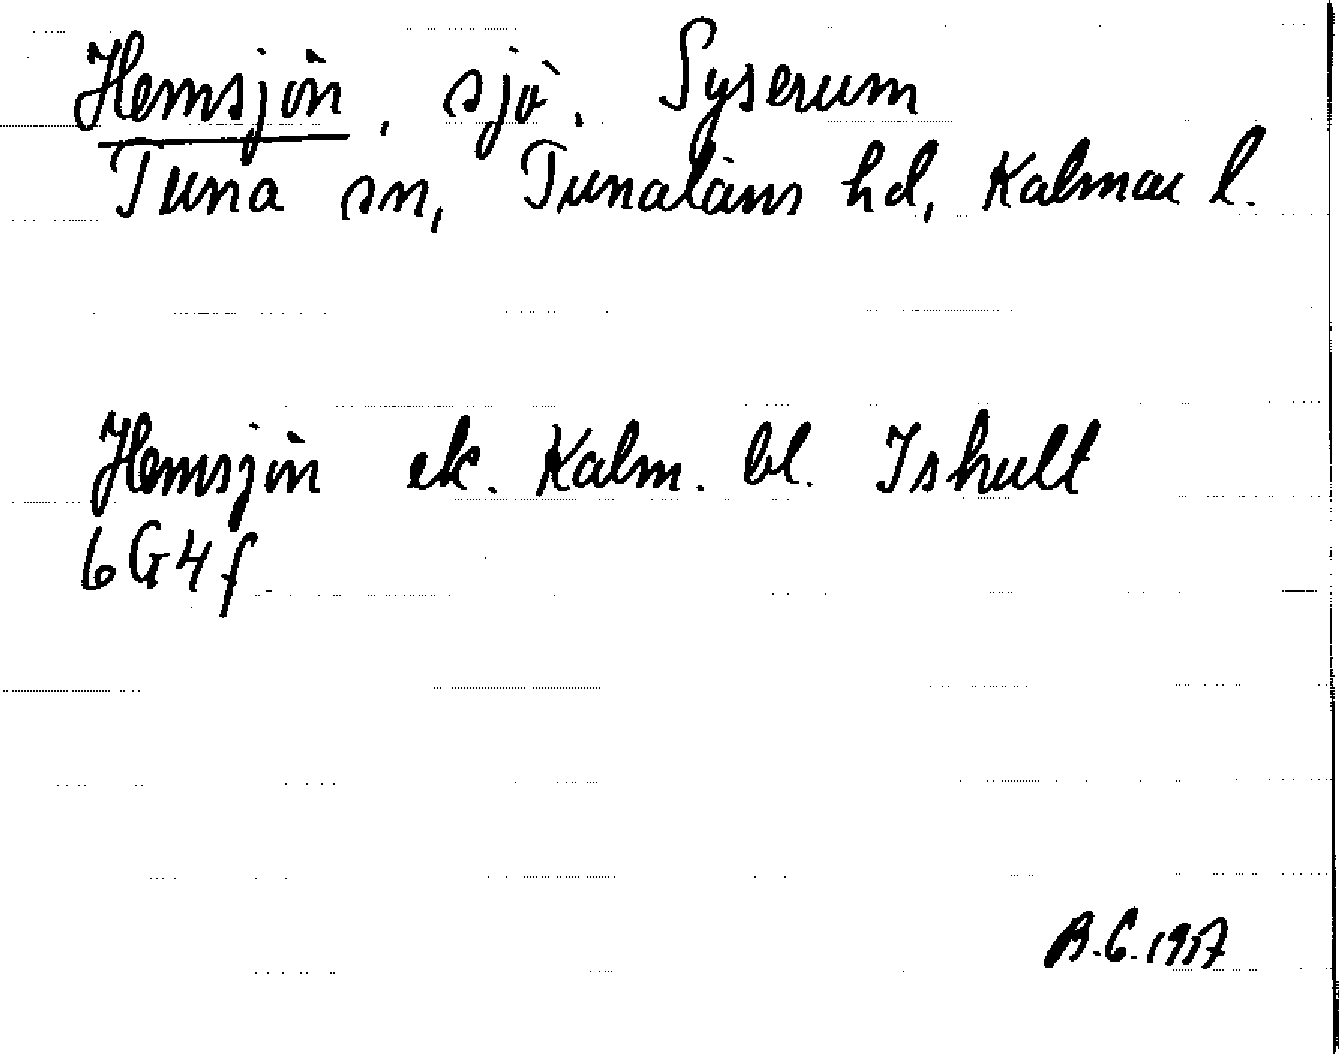 Hemsjön, sjö. Syserum
Tuna sn, Tunaläns hd, Kalmar l.
Hemsjön ek. Kalm. bl. Ishult
6G4f